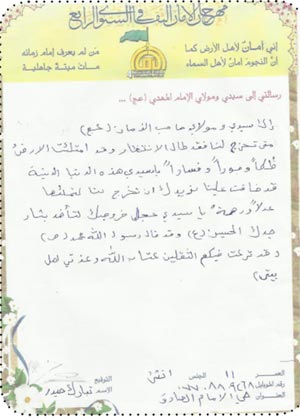 مهرجان الأمان الثقافي السنوي الرابع
إني أمانٌ لأهل الأرض كما
أن النجوم أمان لأهل السماء
من لم يعرف إمام زمانه
مات ميتة جاهلية
رسالتي إلى سيدي ومولاي الإمام المهدي (عج) ...
إلى سيدي ومولاي صاحب الزمان (عج)
متى تخرج لنا فقد طال الانتظار وقد امتلئت الارض
ظلماً وجوراً وفساداً ياسيدي هذه الدنيا الدنية
قد ضاقت علينا نريدك ان تخرج لنا لتملئها
عدلاً ورحمة يا سيدي عجل خروجك لتأخذ بثأر
جدك الحسين (ع) وقد قال رسول الله محمد (ص)
وقد تركت فيكم الثقلين كتاب الله وعترتي اهل
بيتي
العمر 11 الجنس انثى
رقم الموبايل
العنوان حي الامام الصادق
التوقيع
الاسم تبارك حيدر